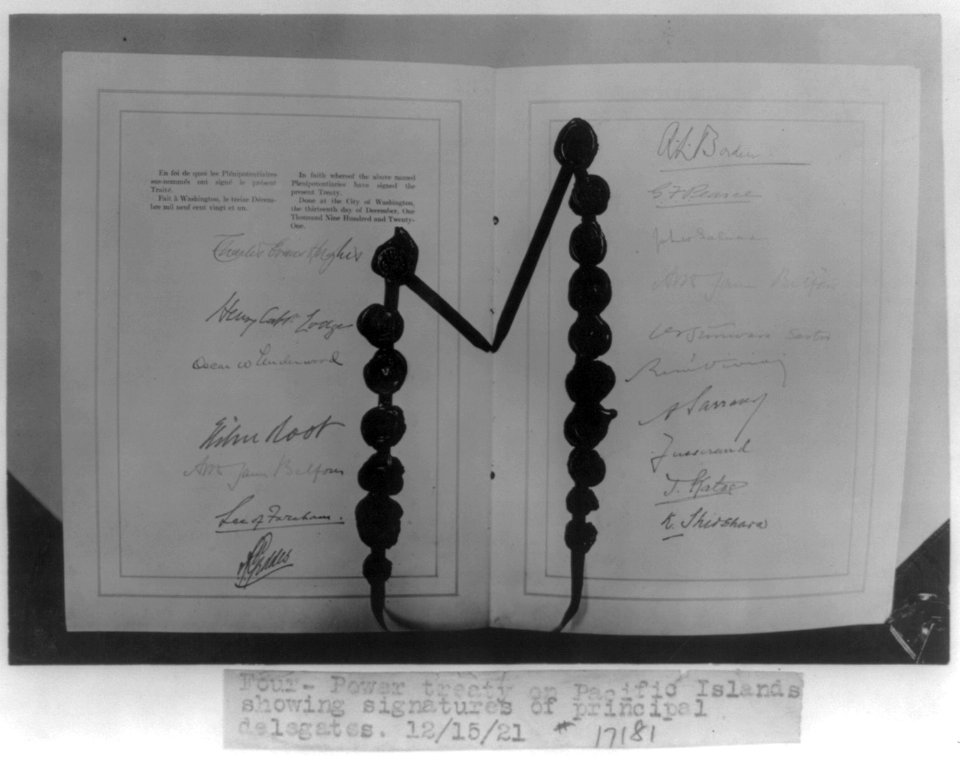 En foi de quoi les Plénipotentiaires
sus-nommés ont signé le présent
Traité.
Fait à Washington, le treize Décem-
bre mil neuf cent vingt et un.
In faith whereof the above named
Plenipotentiaries have signed the
present Treaty.
Done at the City of Washington,
the thirteenth day of December, One
Thousand Nine Hundred and Twenty-
One.
Charles Evans Hughes
Henry Cabot Lodge
Oscar W Underwood
Elihu Root
Arthur James Balfour
Lee of Fareham.
A Geddes
R. L. Borden
G F Pearce
John W Salmond
Arthur James Balfour
V S Srinivasa Sastri
René Viviani
A Sarraut
Jusserand
T. Kato
K. Shidehara
Four- Power treaty on Pacific Islands
showing signatures of principal
delegates. 12/15/21 * 17181